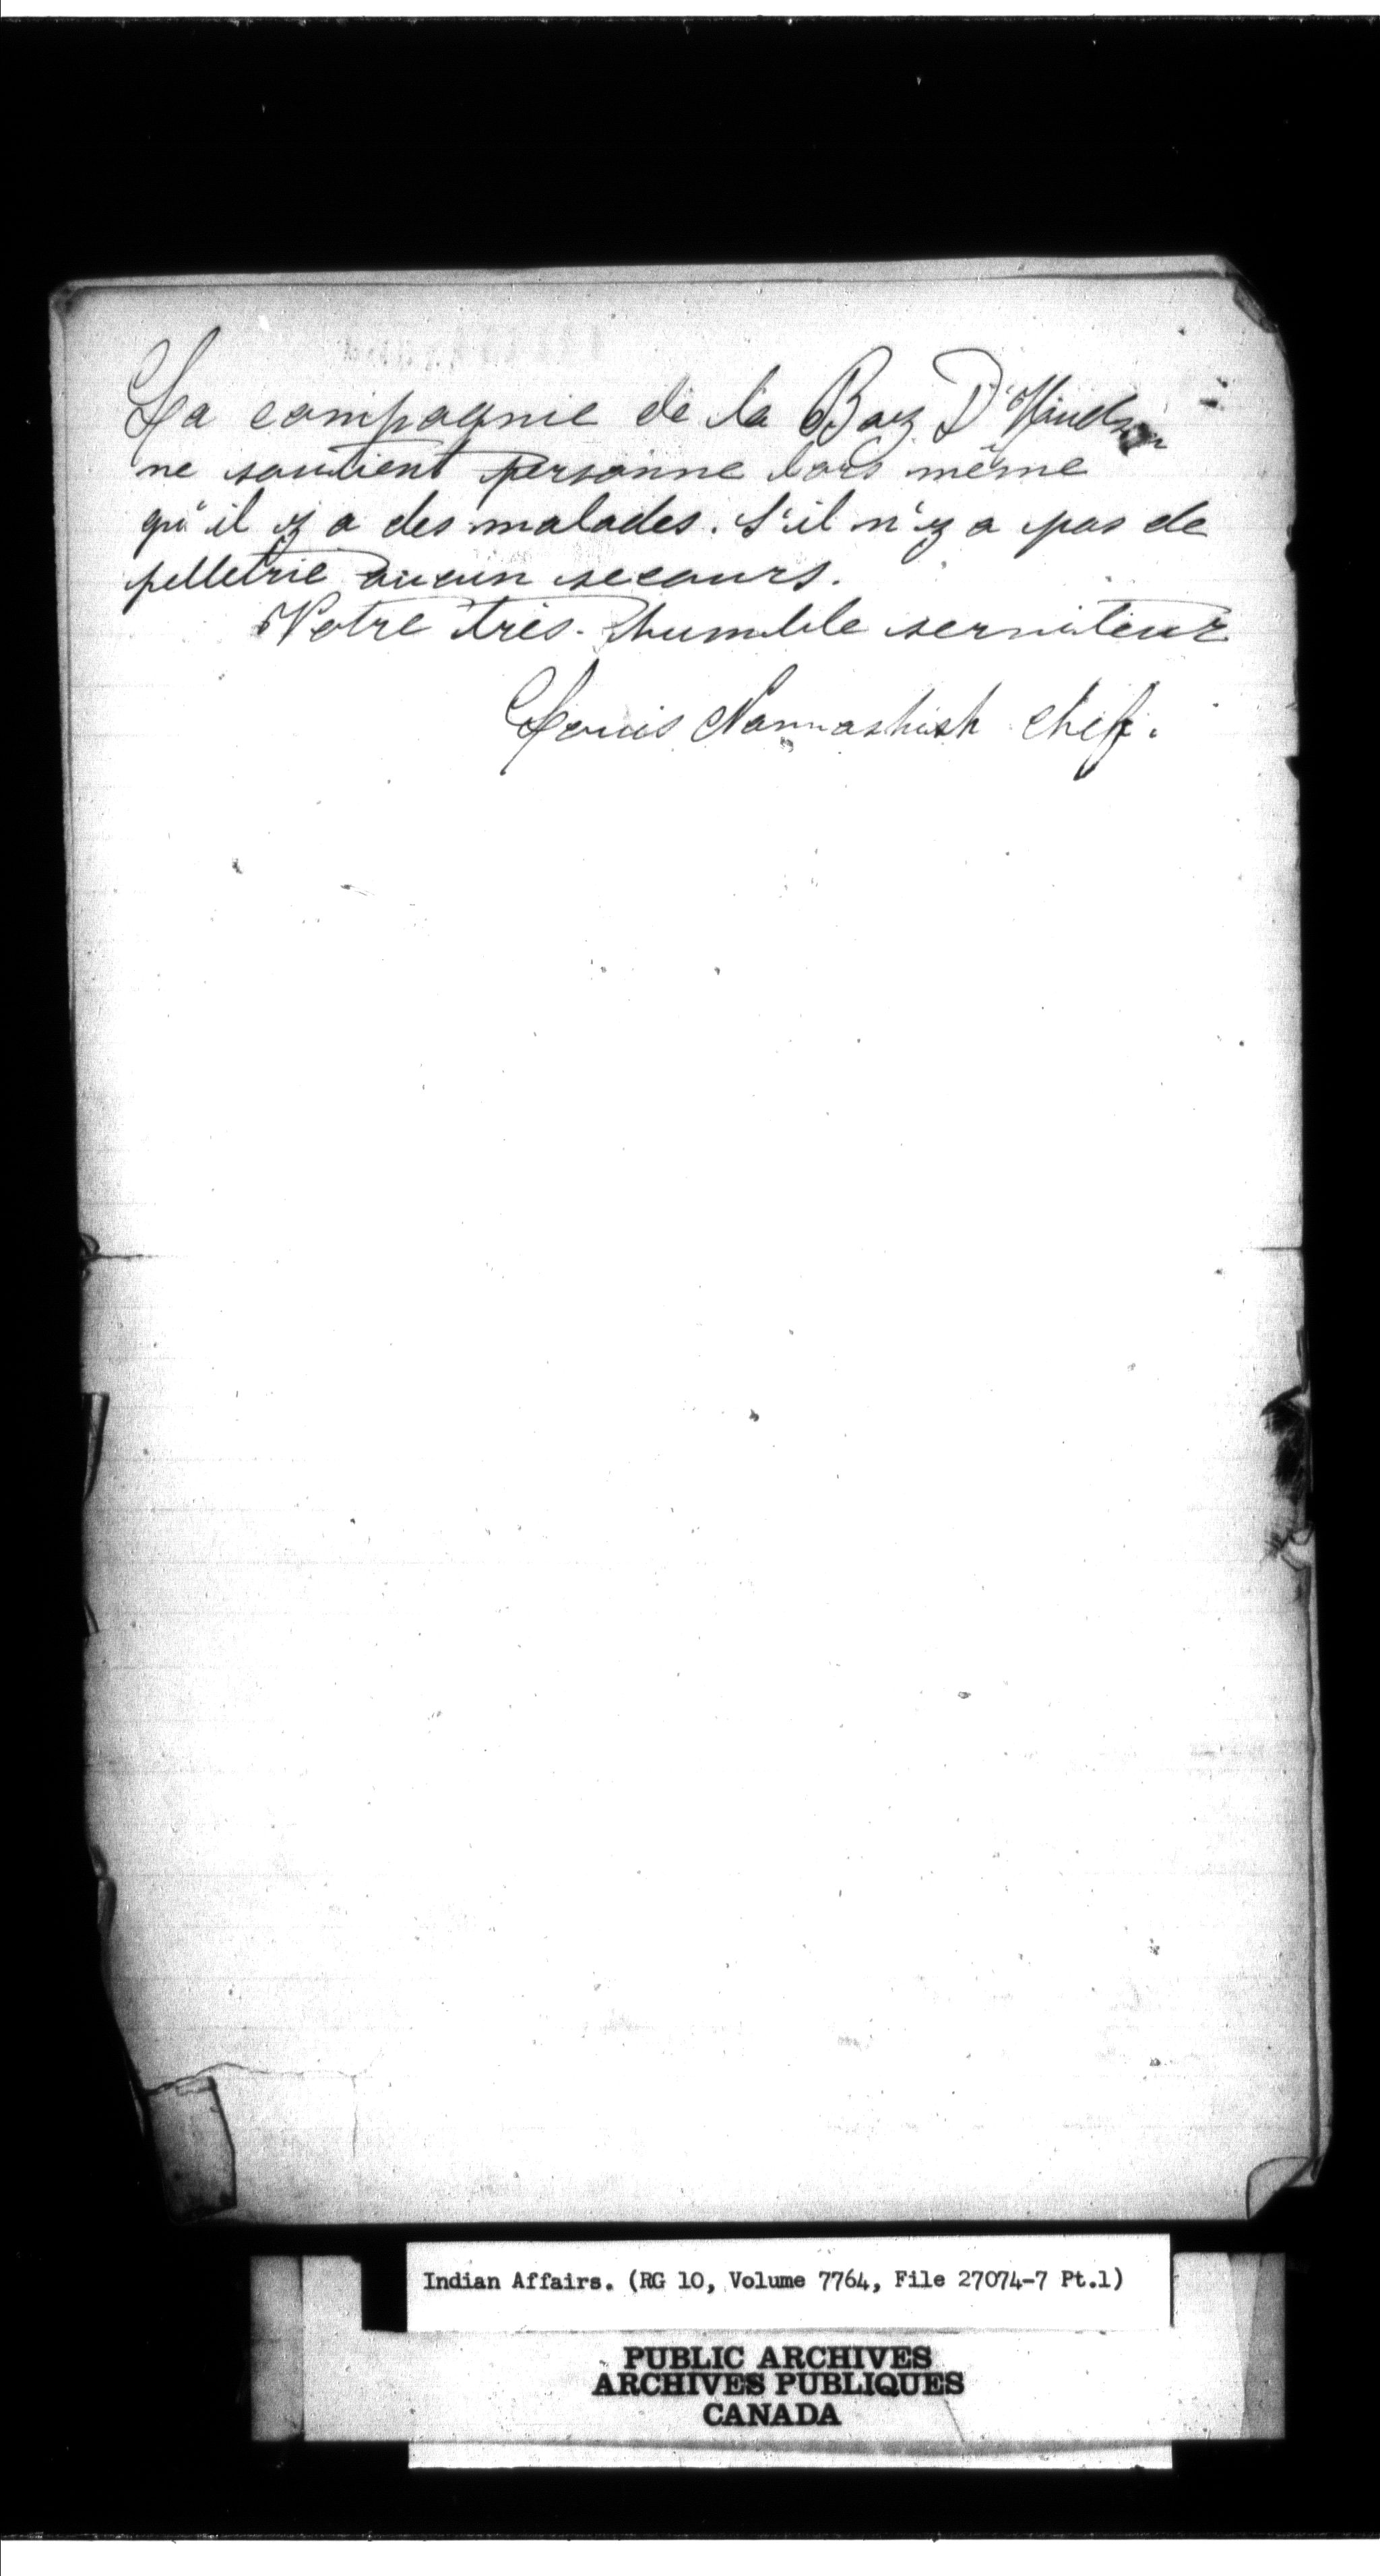 La compagnie de la Bay D'Hudson
ne soutient personne lors même
qu'il y a des malades. S'il n'y a pas de
pelletrie aucun secours.
Votre très-humble serviteur
Louis Nannashish chef.
Indian Affairs. (RG 10, Volume 7764, File 27074-7 Pt.1)
PUBLIC ARCHIVES
ARCHIVES PUBLIQUES
CANADA